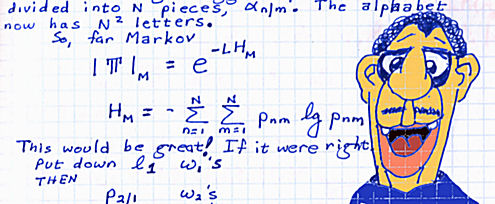 divided into N pieces, αn/m. The alphabet
now has N² letters.
So, far Markov
|T|M = e^-LHM
HM = - N∑n=1 N∑m=1 pnm lg pnm
This would be great! If it were right.
Put down l1 w1's
THEN
P2/1 w2's